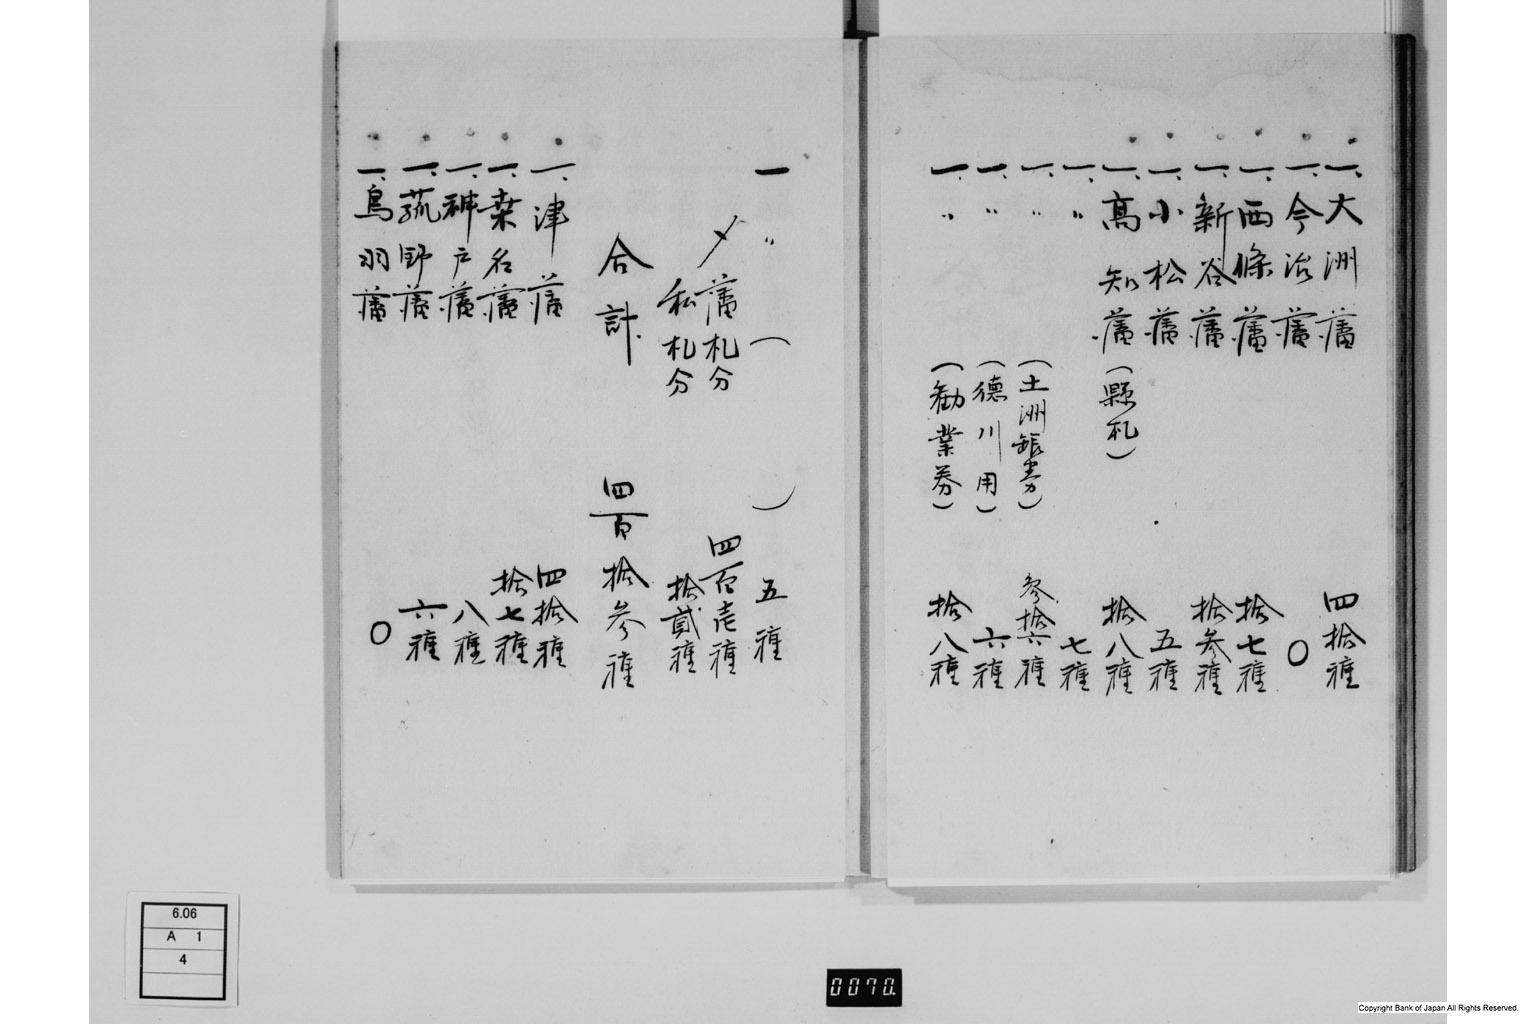 一、大洲藩 四拾種
一、今治藩 〇
一、西條藩 拾七種
一、新谷藩 拾参種
一、小松藩 五種
一、高知藩(縣札) 拾八種
一、〃 七種
一、〃(土洲銀券) 参拾六種
一、〃(徳川用) 六種
一、〃(勧業券) 拾八種
一 〃( ) 五種
〆藩札分 四百壱種
私札分 拾貳種
合計 四百拾参種
一、津藩 四拾種
一、桑名藩 拾七種
一、神戸藩 八種
一、菰野藩 六種
一、鳥羽藩 〇
6.06
A 1
4
0070.
Copyright Bank of Japan All Rights Reserved.